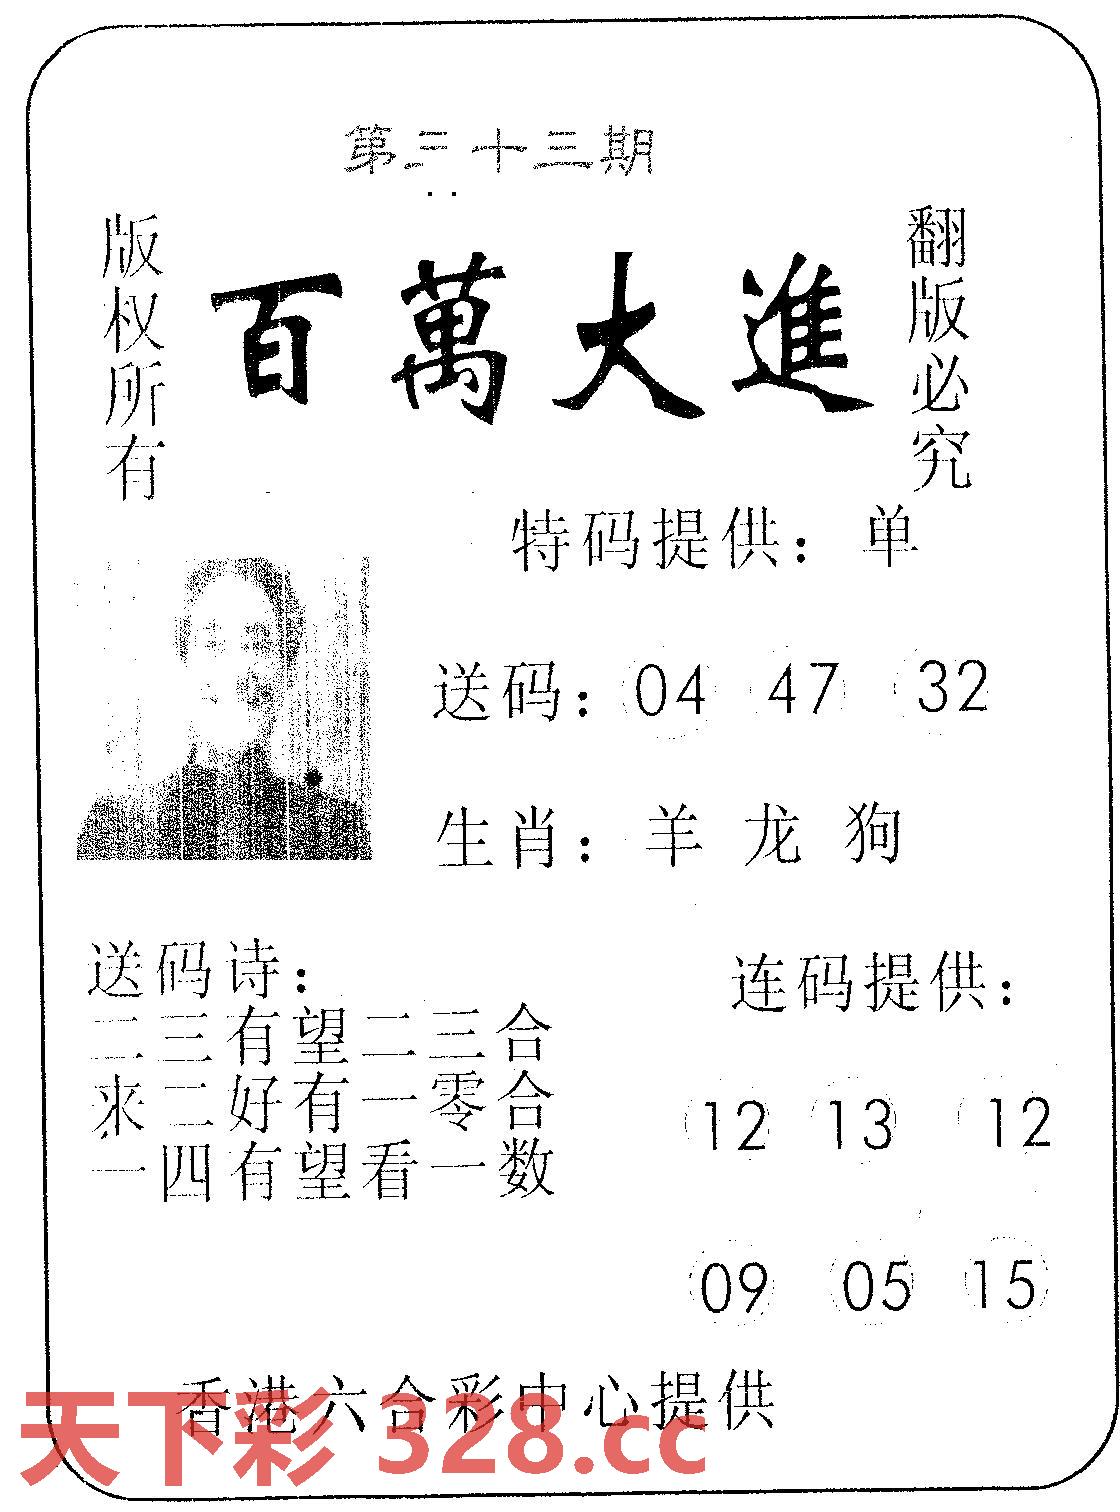 第三十三期
版权所有
百萬大進
翻版必究
特码提供：单
送码：04 47 32
生肖：羊 龙 狗
送码诗：
二三有望二三合
来二好有一零合
一四有望看一数
连码提供：
12 13 12
09 05 15
香港六合彩中心提供
天下彩 328.cc